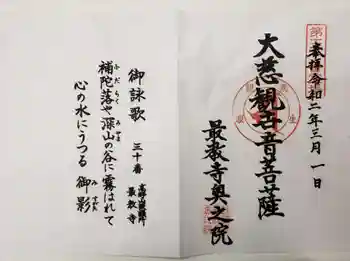 奉拝 令和二年三月一日
大慈観世音菩薩
最教寺奥之院
御詠歌
三十番
最教寺
補陀落や深山の谷に霧はれて
ふだらく みやま
心の水にうつる御影
みすがた